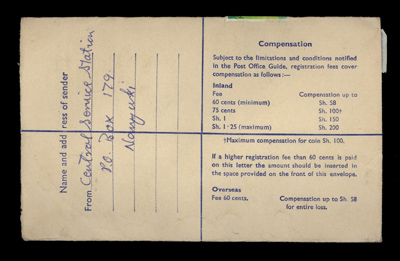 Name and address of sender
From Central Service Station
P.O. Box 179.
Nanyuki
Compensation
Subject to the limitations and conditions notified
in the Post Office Guide, registration fees cover
compensation as follows:—
Inland
Fee Compensation up to
60 cents (minimum) Sh. 58
75 cents Sh. 100†
Sh. 1 Sh. 150
Sh. 1·25 (maximum) Sh. 200
†Maximum compensation for coin Sh. 100.
If a higher registration fee than 60 cents is paid
on this letter the amount should be inserted in
the space provided on the front of this envelope.
Overseas
Fee 60 cents. Compensation up to Sh. 58
for entire loss.